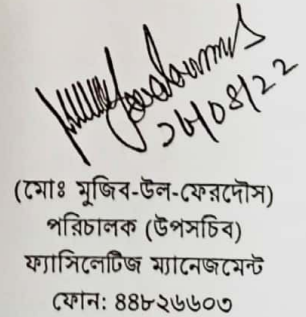 (মোঃ মুজিব-উল-ফেরদৌস)
পরিচালক (উপসচিব)
ফ্যাসিলেটিজ ম্যানেজমেন্ট
ফোন: ৪৪৮২৬৬০৩